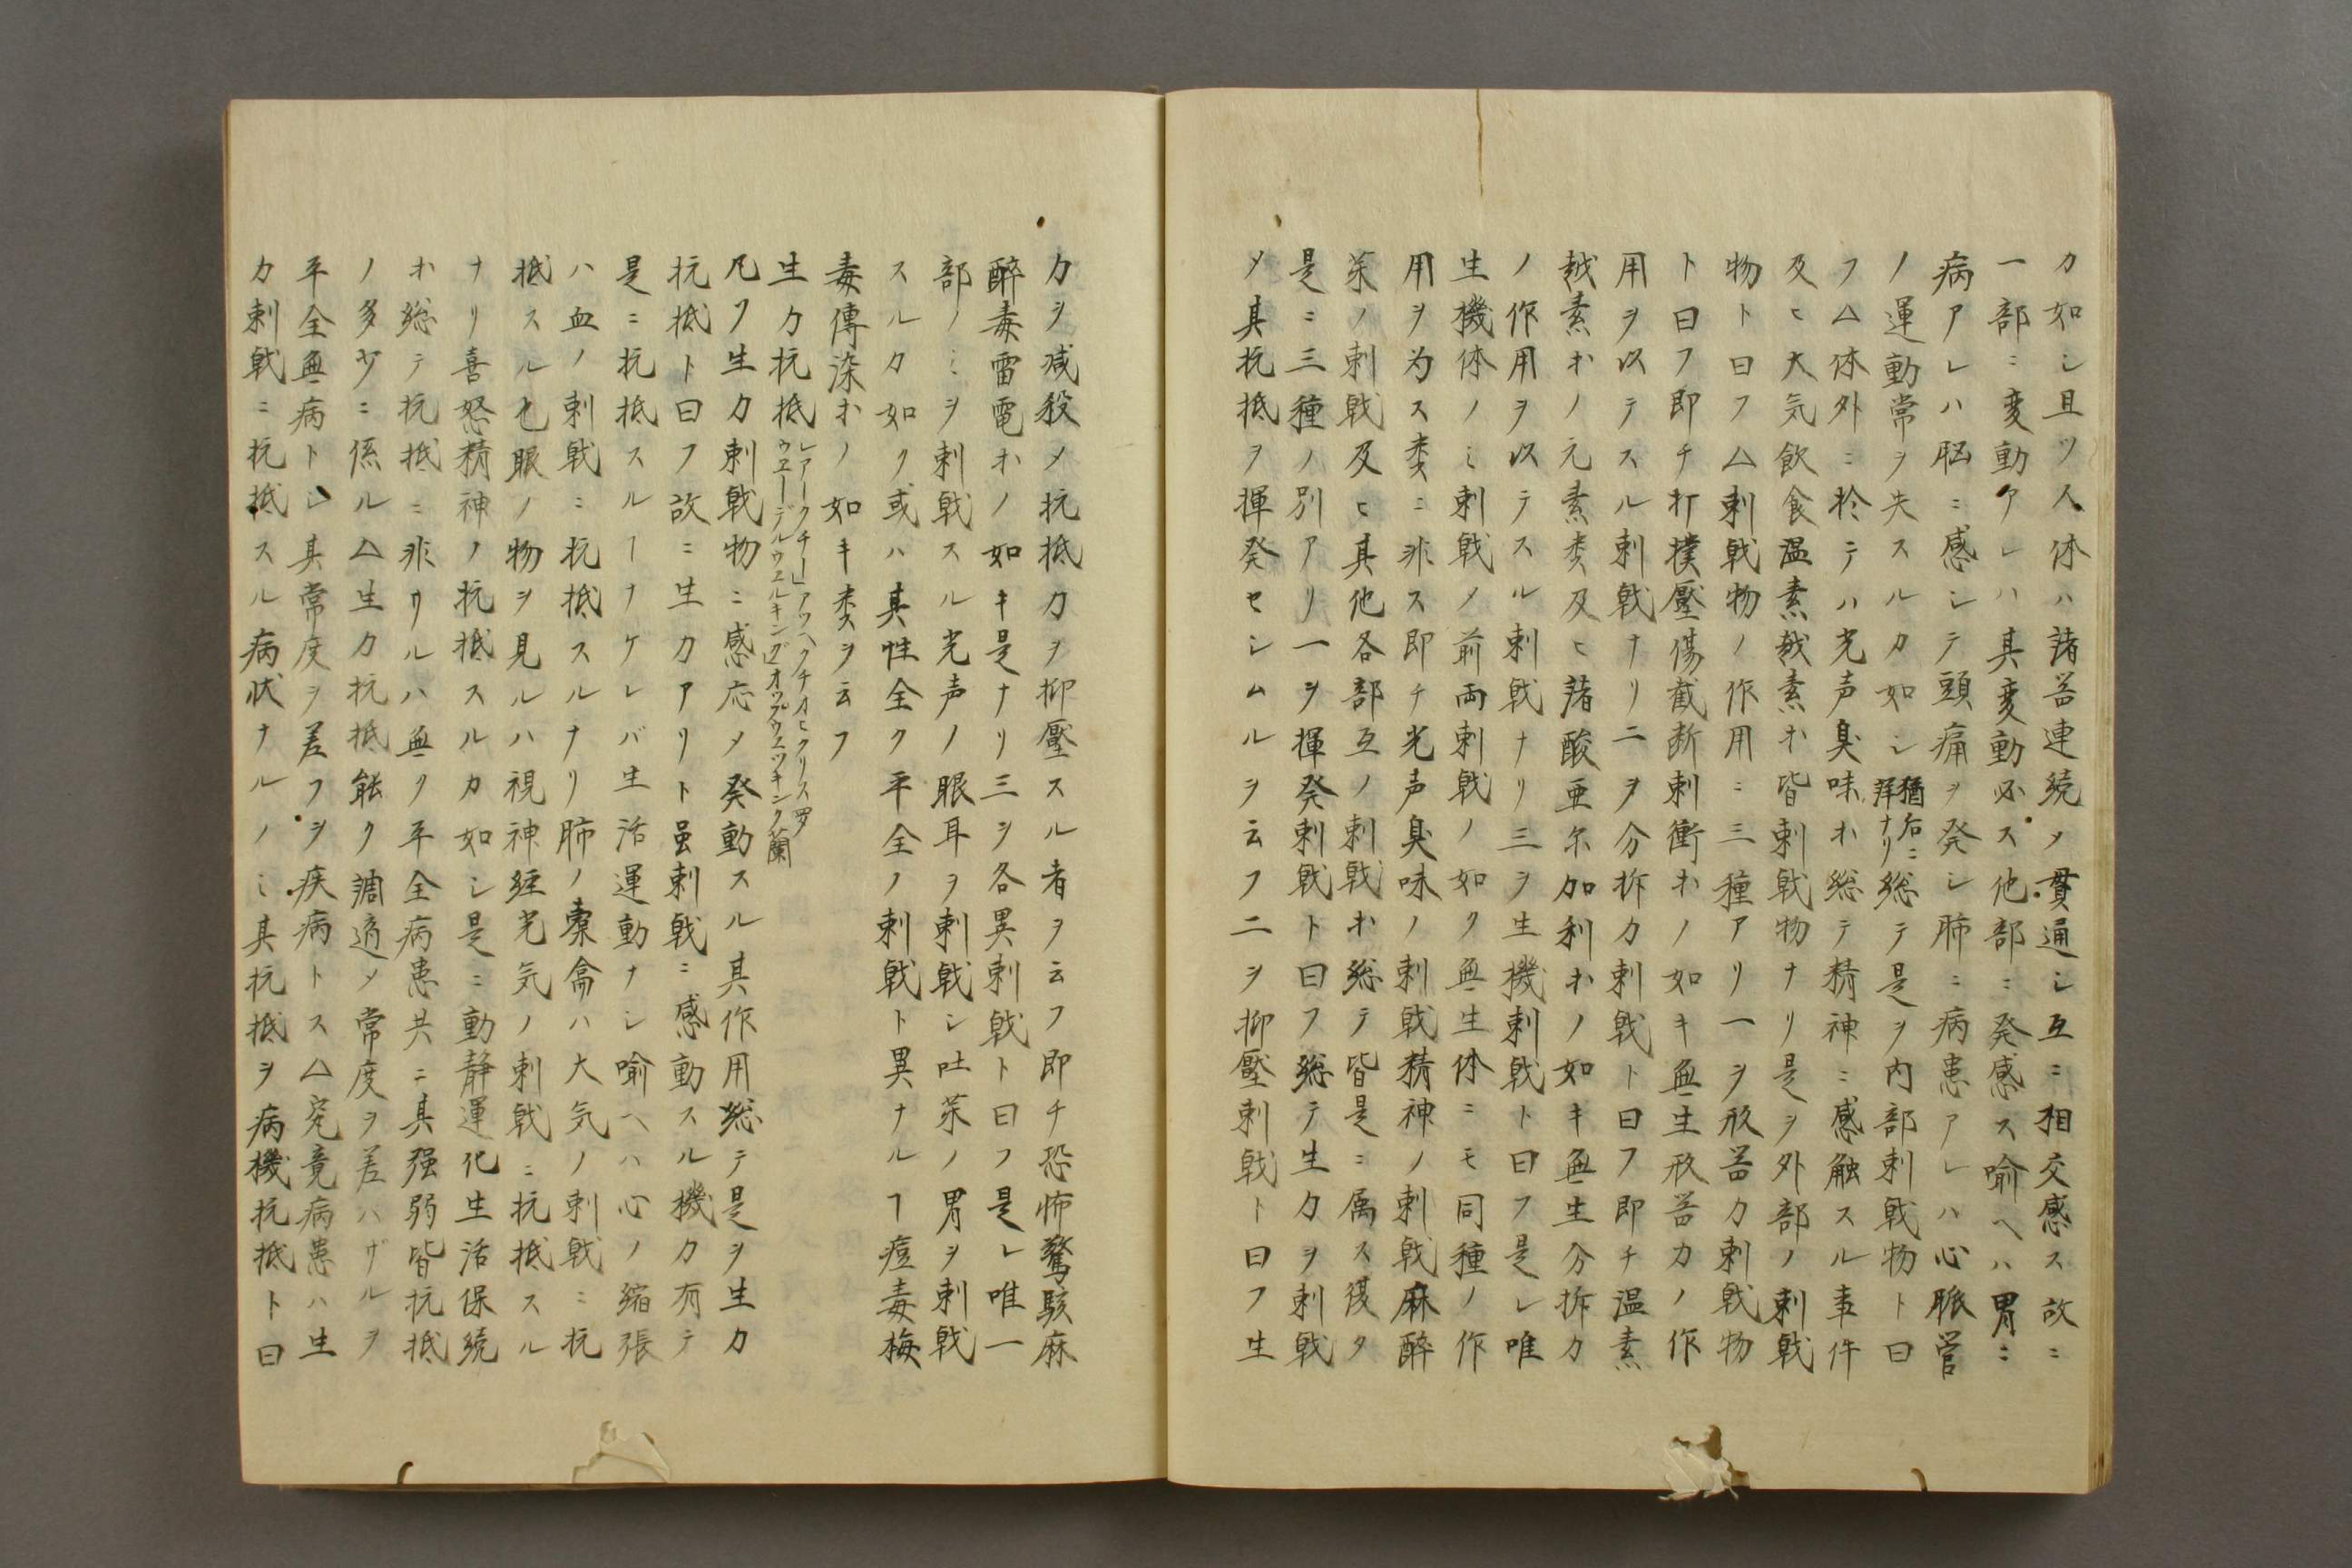 カ如シ且ツ人体ハ諸器連続メ貫通シ互ニ相交感ス故ニ
一部ニ変動アレハ其変動必ス他部ニ発感ス喻ヘハ胃ニ
病アレハ脳ニ感シテ頭痛ヲ発シ肺ニ病患アレハ心脈管
ノ運動常ヲ失スルカ如シ猶右ニ詳ナリ総テ是ヲ内部刺戟物ト曰
フ△体外ニ於テハ光声臭味ホ総テ精神ニ感触スル事件
及ヒ大気飲食温素越素ホ皆刺戟物ナリ是ヲ外部ノ刺戟
物ト曰フ△刺戟物ノ作用ニ三種アリ一ヲ形器力刺戟物
ト曰フ即チ打撲壓傷截断刺衝ホノ如キ無生形器力ノ作
用ヲ以テスル刺戟ナリ二ヲ分拆力刺戟ト曰フ即チ温素
越素ホノ元素类及ヒ諸酸亜尓加利ホノ如キ無生分拆力
ノ作用ヲ以テスル刺戟ナリ三ヲ生機刺戟ト曰フ是レ唯
生機体ノミ刺戟ノ前両刺戟ノ如ク無生体ニモ同種ノ作
用ヲ为ス类ニ非ス即チ光声臭味ノ刺戟精神ノ刺戟麻酔
薬ノ刺戟及ヒ其他各部互ノ刺戟ホ総テ皆是ニ属ス復タ
是ニ三種ノ別アリ一ヲ揮発刺戟ト曰フ総テ生力ヲ刺戟
メ其抗抵ヲ揮発セシムルヲ云フ二ヲ抑壓刺戟ト曰フ生
力ヲ减殺メ抗抵力ヲ抑壓スル者ヲ云フ即チ恐怖驚駭麻
酔毒雷電ホノ如キ是ナリ三ヲ各異刺戟ト曰フ是レ唯一
部ノミヲ刺戟スル光声ノ眼耳ヲ刺戟シ吐薬ノ胃ヲ刺戟
スルカ如ク或ハ其性全ク平全ノ刺戟ト異ナルヿ痘毒梅
毒傳染ホノ如キ类ヲ云フ
生力抗抵
レアークチー」アツヘクチオヒクリス罗
ウエーデルウエルキング」オップウエッキンク蘭
凡ソ生力刺戟物ニ感応メ発動スル其作用総テ是ヲ生力
抗抵ト曰フ故ニ生力アリト虽刺戟ニ感動スル機力有テ
是ニ抗抵スルーナケレバ生活運動ナシ喻ヘハ心ノ縮張
ハ血ノ刺戟ニ抗抵スルナリ肺ノ橐龠ハ大気ノ刺戟ニ抗
抵スル也眼ノ物ヲ見ルハ視神経光気ノ刺戟ニ抗抵スル
ナリ喜怒精神ノ抗抵スルカ如シ是ニ動静運化生活保続
ホ総テ抗抵ニ非サルハ無ク平全病患共ニ其强弱皆抗抵
ノ多少ニ係ル△生力抗抵能ク調适メ常度ヲ差ハザルヲ
平全無病トシ其常度ヲ差フヲ疾病トス△究竟病患ハ生
力刺戟ニ抗抵スル病状ナルノミ其抗抵ヲ病機抗抵ト曰